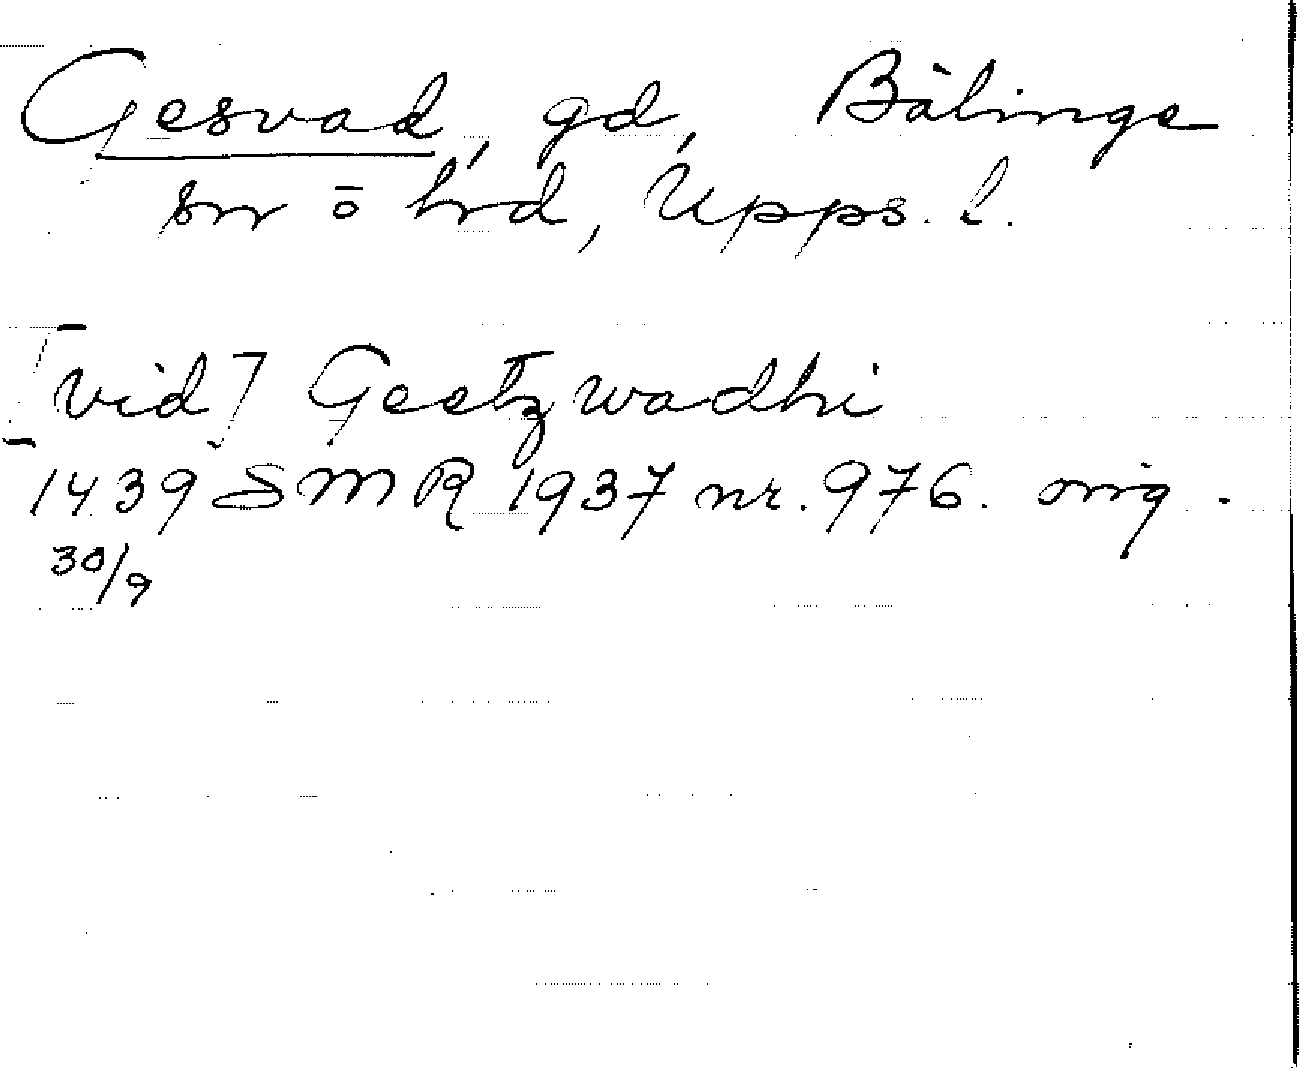 Gesvad, gd, Bälinge
sn ō hrd, Upps. l.
[vid] Geetzwadhi
1439 SMR 1937 nr. 976. orig.
30/9